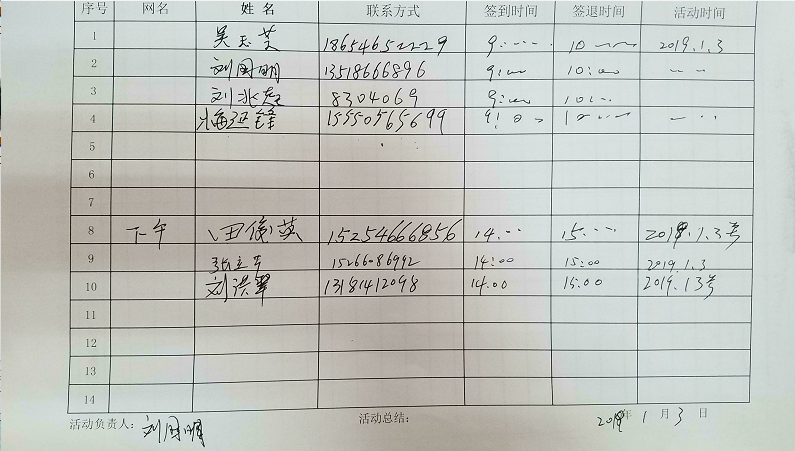 序号 网名 姓名 联系方式 签到时间 签退时间 活动时间
1 吴玉芝 18654652229 9:00 10:00 2019.1.3
2 刘国明 13518666896 9:00 10:00
3 刘兆 8304069 9:00 10:00
4 15550565699 9:00 10:00
5
6
7
8 下午 田俊英 15254666856 14:00 15:00 2019.1.3号
9 张立 15266086992 14:00 15:00 2019.1.3
10 刘洪翠 13181412098 14:00 15:00 2019.1.3号
11
12
13
14
活动负责人: 刘国明 活动总结: 2019年 1月 3日